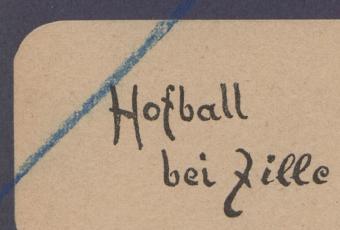 Hofball
bei Zille